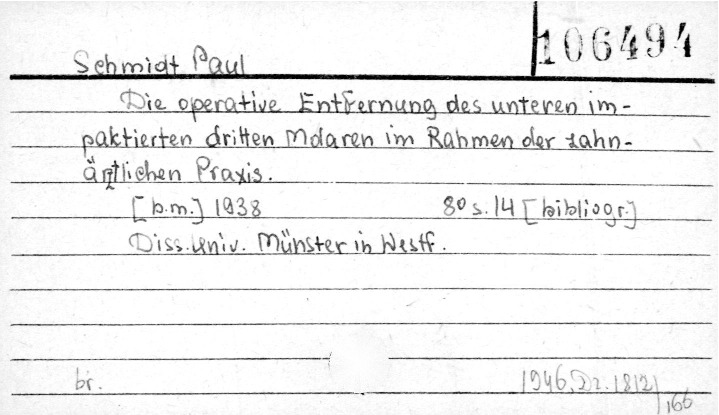 106494
Schmidt Paul
Die operative Entfernung des unteren im-
paktierten dritten Molaren im Rahmen der zahn-
ärztlichen Praxis.
[b.m.] 1938 8° s. 14 [bibliogr.]
Diss. Univ. Münster in Westf.
br. 1946. Dz. 1812/
166